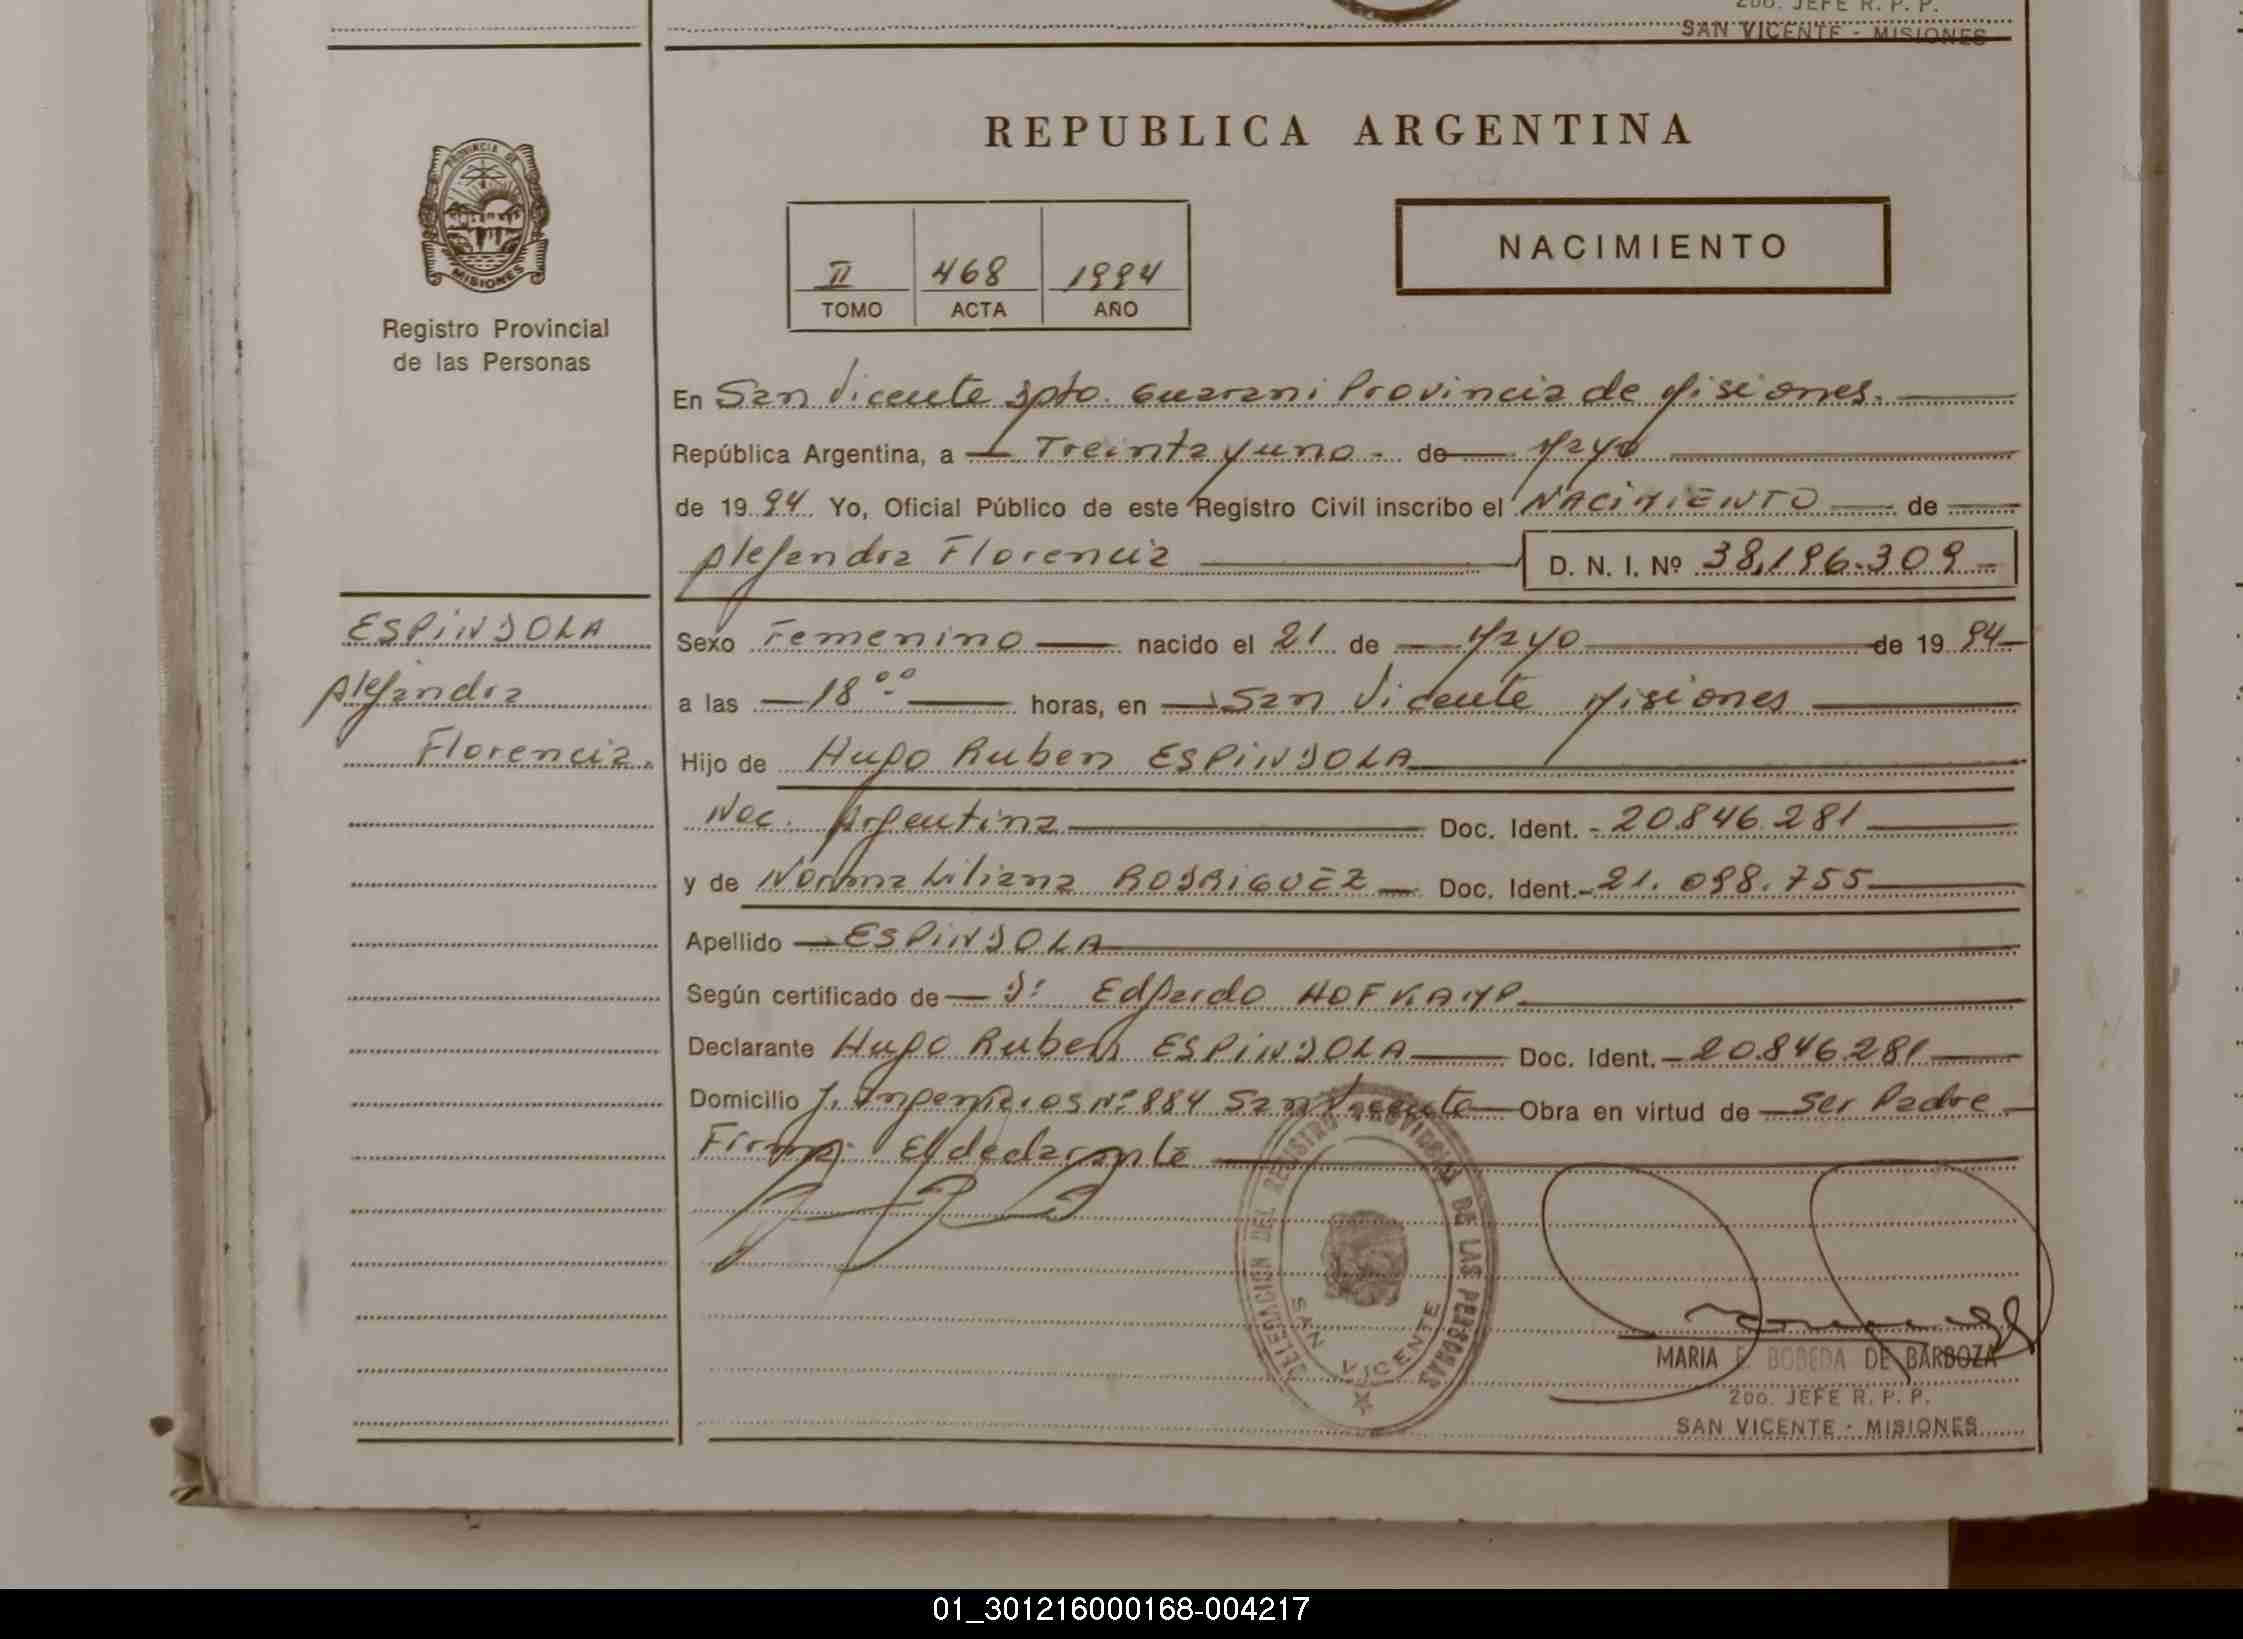 2do. JEFE R. P. P.
SAN VICENTE - MISIONES
PROVINCIA DE
MISIONES
Registro Provincial
de las Personas
REPUBLICA ARGENTINA
II 468 1994
TOMO ACTA AÑO
NACIMIENTO
En San Vicente Dpto. Guarani Provincia de Misiones.
República Argentina, a Treinta y uno - de Mayo
de 1994 Yo, Oficial Público de este Registro Civil inscribo el NACIMIENTO de
Alejandra Florencia D. N. I. Nº 38.196.309
ESPINDOLA
Alejandra
Florencia.
Sexo Femenino nacido el 21 de Mayo de 1994
a las 18 00 horas, en San Vicente Misiones
Hijo de Hugo Ruben ESPINDOLA
Nac. Argentina Doc. Ident. 20.846.281
y de Norma Liliana RODRIGUEZ Doc. Ident. 21.098.755
Apellido ESPINDOLA
Según certificado de Dr Edgardo HOFKAMP
Declarante Hugo Ruben ESPINDOLA Doc. Ident. 20.846.281
Domicilio J. Ingenieros Nº 884 San Vicente Obra en virtud de ser Padre
Firma: El declarante
DELEGACION DEL REGISTRO PROVINCIAL DE LAS PERSONAS
SAN VICENTE
MARIA E. BOBEDA DE BARBOZA
2do. JEFE R. P. P.
SAN VICENTE - MISIONES
01_301216000168-004217